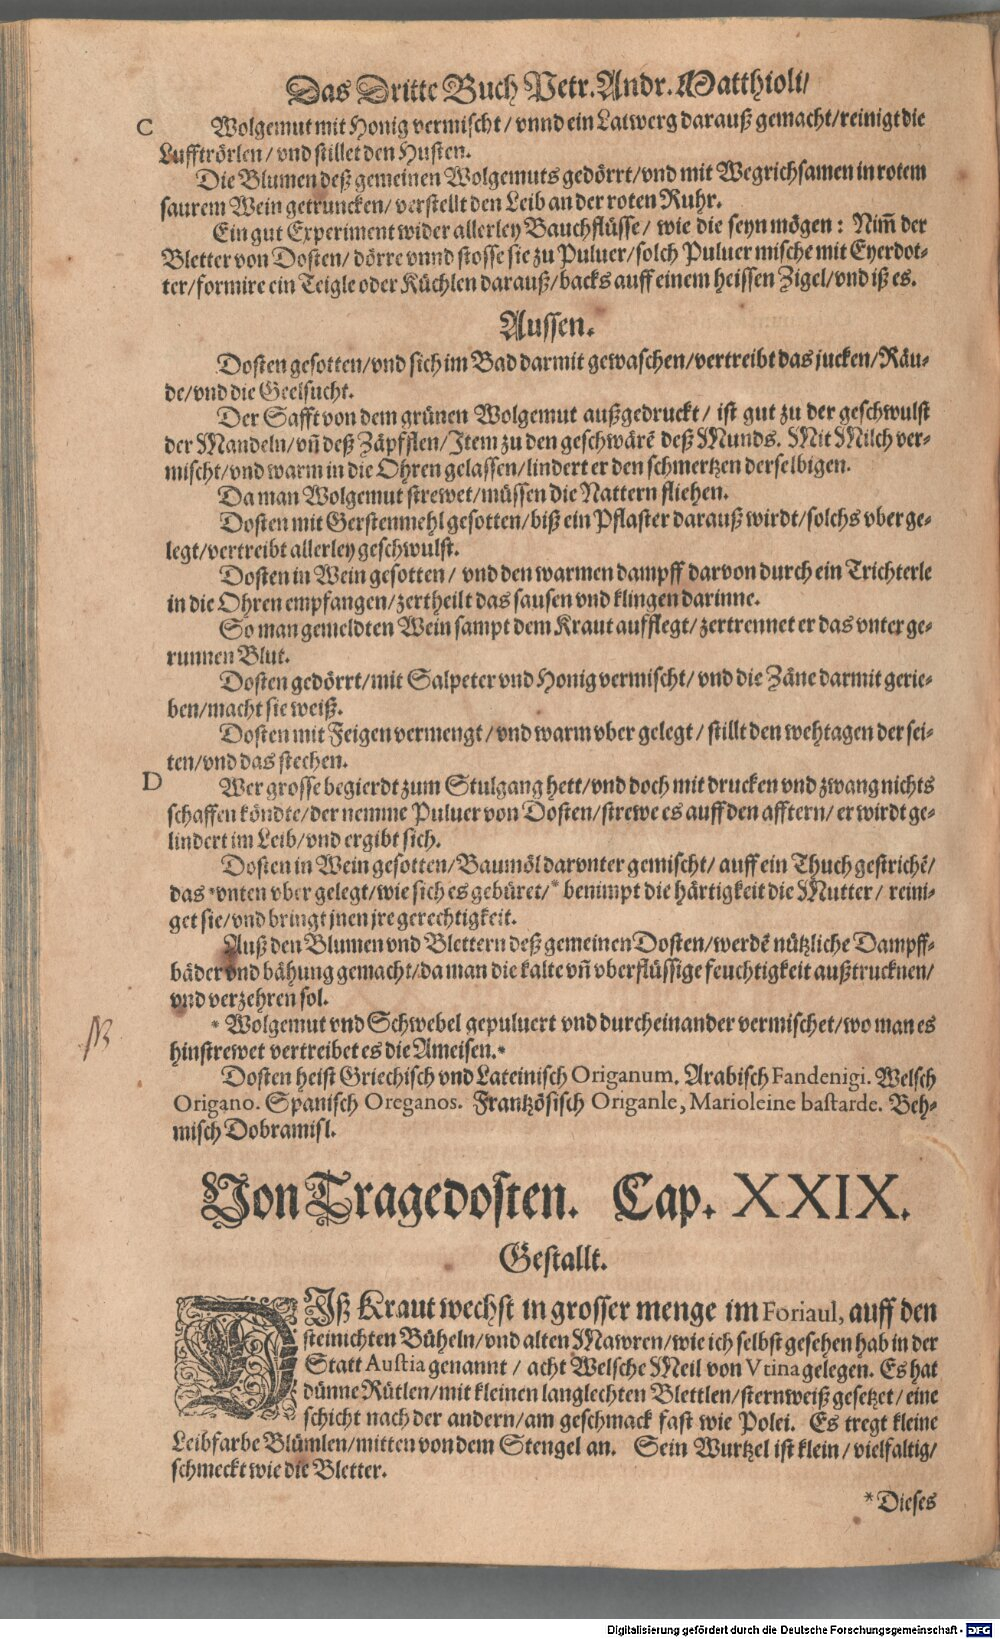 Das Dritte Buch Petr. Andr. Matthioli/
C Wolgemut mit Honig vermischt/ vnnd ein Latwerg darauß gemacht/ reinigt die
Lufftrörlen/ vnd stillet den Husten.
Die Blumen deß gemeinen Wolgemuts gedörrt/ vnd mit Wegrichsamen in rotem
saurem Wein getruncken/ verstellt den Leib an der roten Ruhr.
Ein gut Experiment wider allerley Bauchflüsse/ wie die seyn mögen: Nim̃ der
Bletter von Dosten/ dörre vnnd stosse sie zu Puluer/ solch Puluer mische mit Eyerdot-
ter/ formire ein Teigle oder Küchlen darauß/ backs auff einem heissen Zigel/ vnd iß es.
Aussen.
Dosten gesotten/ vnd sich im Bad darmit gewaschen/ vertreibt das jucken/ Räu-
de/ vnd die Geelsucht.
Der Safft von dem grünen Wolgemut außgedruckt/ ist gut zu der geschwulst
der Mandeln/ vñ deß Zäpfflen/ Item zu den geschwärẽ deß Munds. Mit Milch ver-
mischt/ vnd warm in die Ohren gelassen/ lindert er den schmertzen derselbigen.
Da man Wolgemut strewet/ müssen die Nattern fliehen.
Dosten mit Gerstenmehl gesotten/ biß ein Pflaster darauß wirdt/ solchs vber ge-
legt/ vertreibt allerley geschwulst.
Dosten in Wein gesotten/ vnd den warmen dampff darvon durch ein Trichterle
in die Ohren empfangen/ zertheilt das sausen vnd klingen darinne.
So man gemeldten Wein sampt dem Kraut aufflegt/ zertrennet er das vnter ge-
runnen Blut.
Dosten gedörrt/ mit Salpeter vnd Honig vermischt/ vnd die Zäne darmit gerie-
ben/ macht sie weiß.
Dosten mit Feigen vermengt/ vnd warm vber gelegt/ stillt den wehtagen der sei-
ten/ vnd das stechen.
D Wer grosse begierdt zum Stulgang hett/ vnd doch mit drucken vnd zwang nichts
schaffen köndte/ der nemme Puluer von Dosten/ strewe es auff den afftern/ er wirdt ge-
lindert im Leib/ vnd ergibt sich.
Dosten in Wein gesotten/ Baumöl darvnter gemischt/ auff ein Thuch gestrichẽ/
das *vnten vber gelegt/ wie sich es gebüret/* benimpt die härtigkeit die Mutter/ reini-
get sie/ vnd bringt jnen jre gerechtigkeit.
Auß den Blumen vnd Blettern deß gemeinen Dosten/ werdẽ nützliche Dampff-
bäder vnd bähung gemacht/ da man die kalte vñ vberflüssige feuchtigkeit außtrucknen/
vnd verzehren sol.
* Wolgemut vnd Schwebel gepuluert vnd durcheinander vermischet/ wo man es
hinstrewet vertreibet es die Ameisen.*
Dosten heist Griechisch vnd Lateinisch Origanum. Arabisch Fandenigi. Welsch
Origano. Spanisch Oreganos. Frantzösisch Origanle, Marioleine bastarde. Beh-
misch Dobramisl.
Von Tragedosten. Cap. XXIX.
Gestallt.
DIß Kraut wechst in grosser menge im Foriaul, auff den
steinichten Büheln/ vnd alten Mawren/ wie ich selbst gesehen hab in der
Statt Austia genannt/ acht Welsche Meil von Vtina gelegen. Es hat
dünne Rütlen/ mit kleinen langlechten Blettlen/ sternweiß gesetzet/ eine
schicht nach der andern/ am geschmack fast wie Polei. Es tregt kleine
Leibfarbe Blümlen/ mitten von dem Stengel an. Sein Wurtzel ist klein/ vielfaltig/
schmeckt wie die Bletter.
* Dieses
Digitalisierung gefördert durch die Deutsche Forschungsgemeinschaft - DFG